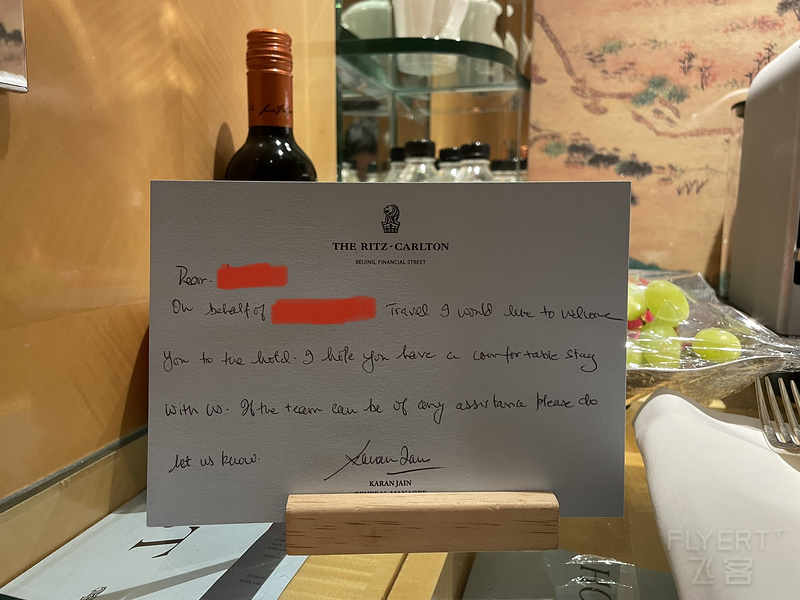 THE RITZ-CARLTON
BEIJING, FINANCIAL STREET
Dear.
On behalf of Travel I would like to welcome
you to the hotel. I hope you have a comfortable stay
with us. If the team can be of any assistance please do
let us know.
Karan Jain
KARAN JAIN
GENERAL MANAGER
ST
HO
FLYERT+
飞客